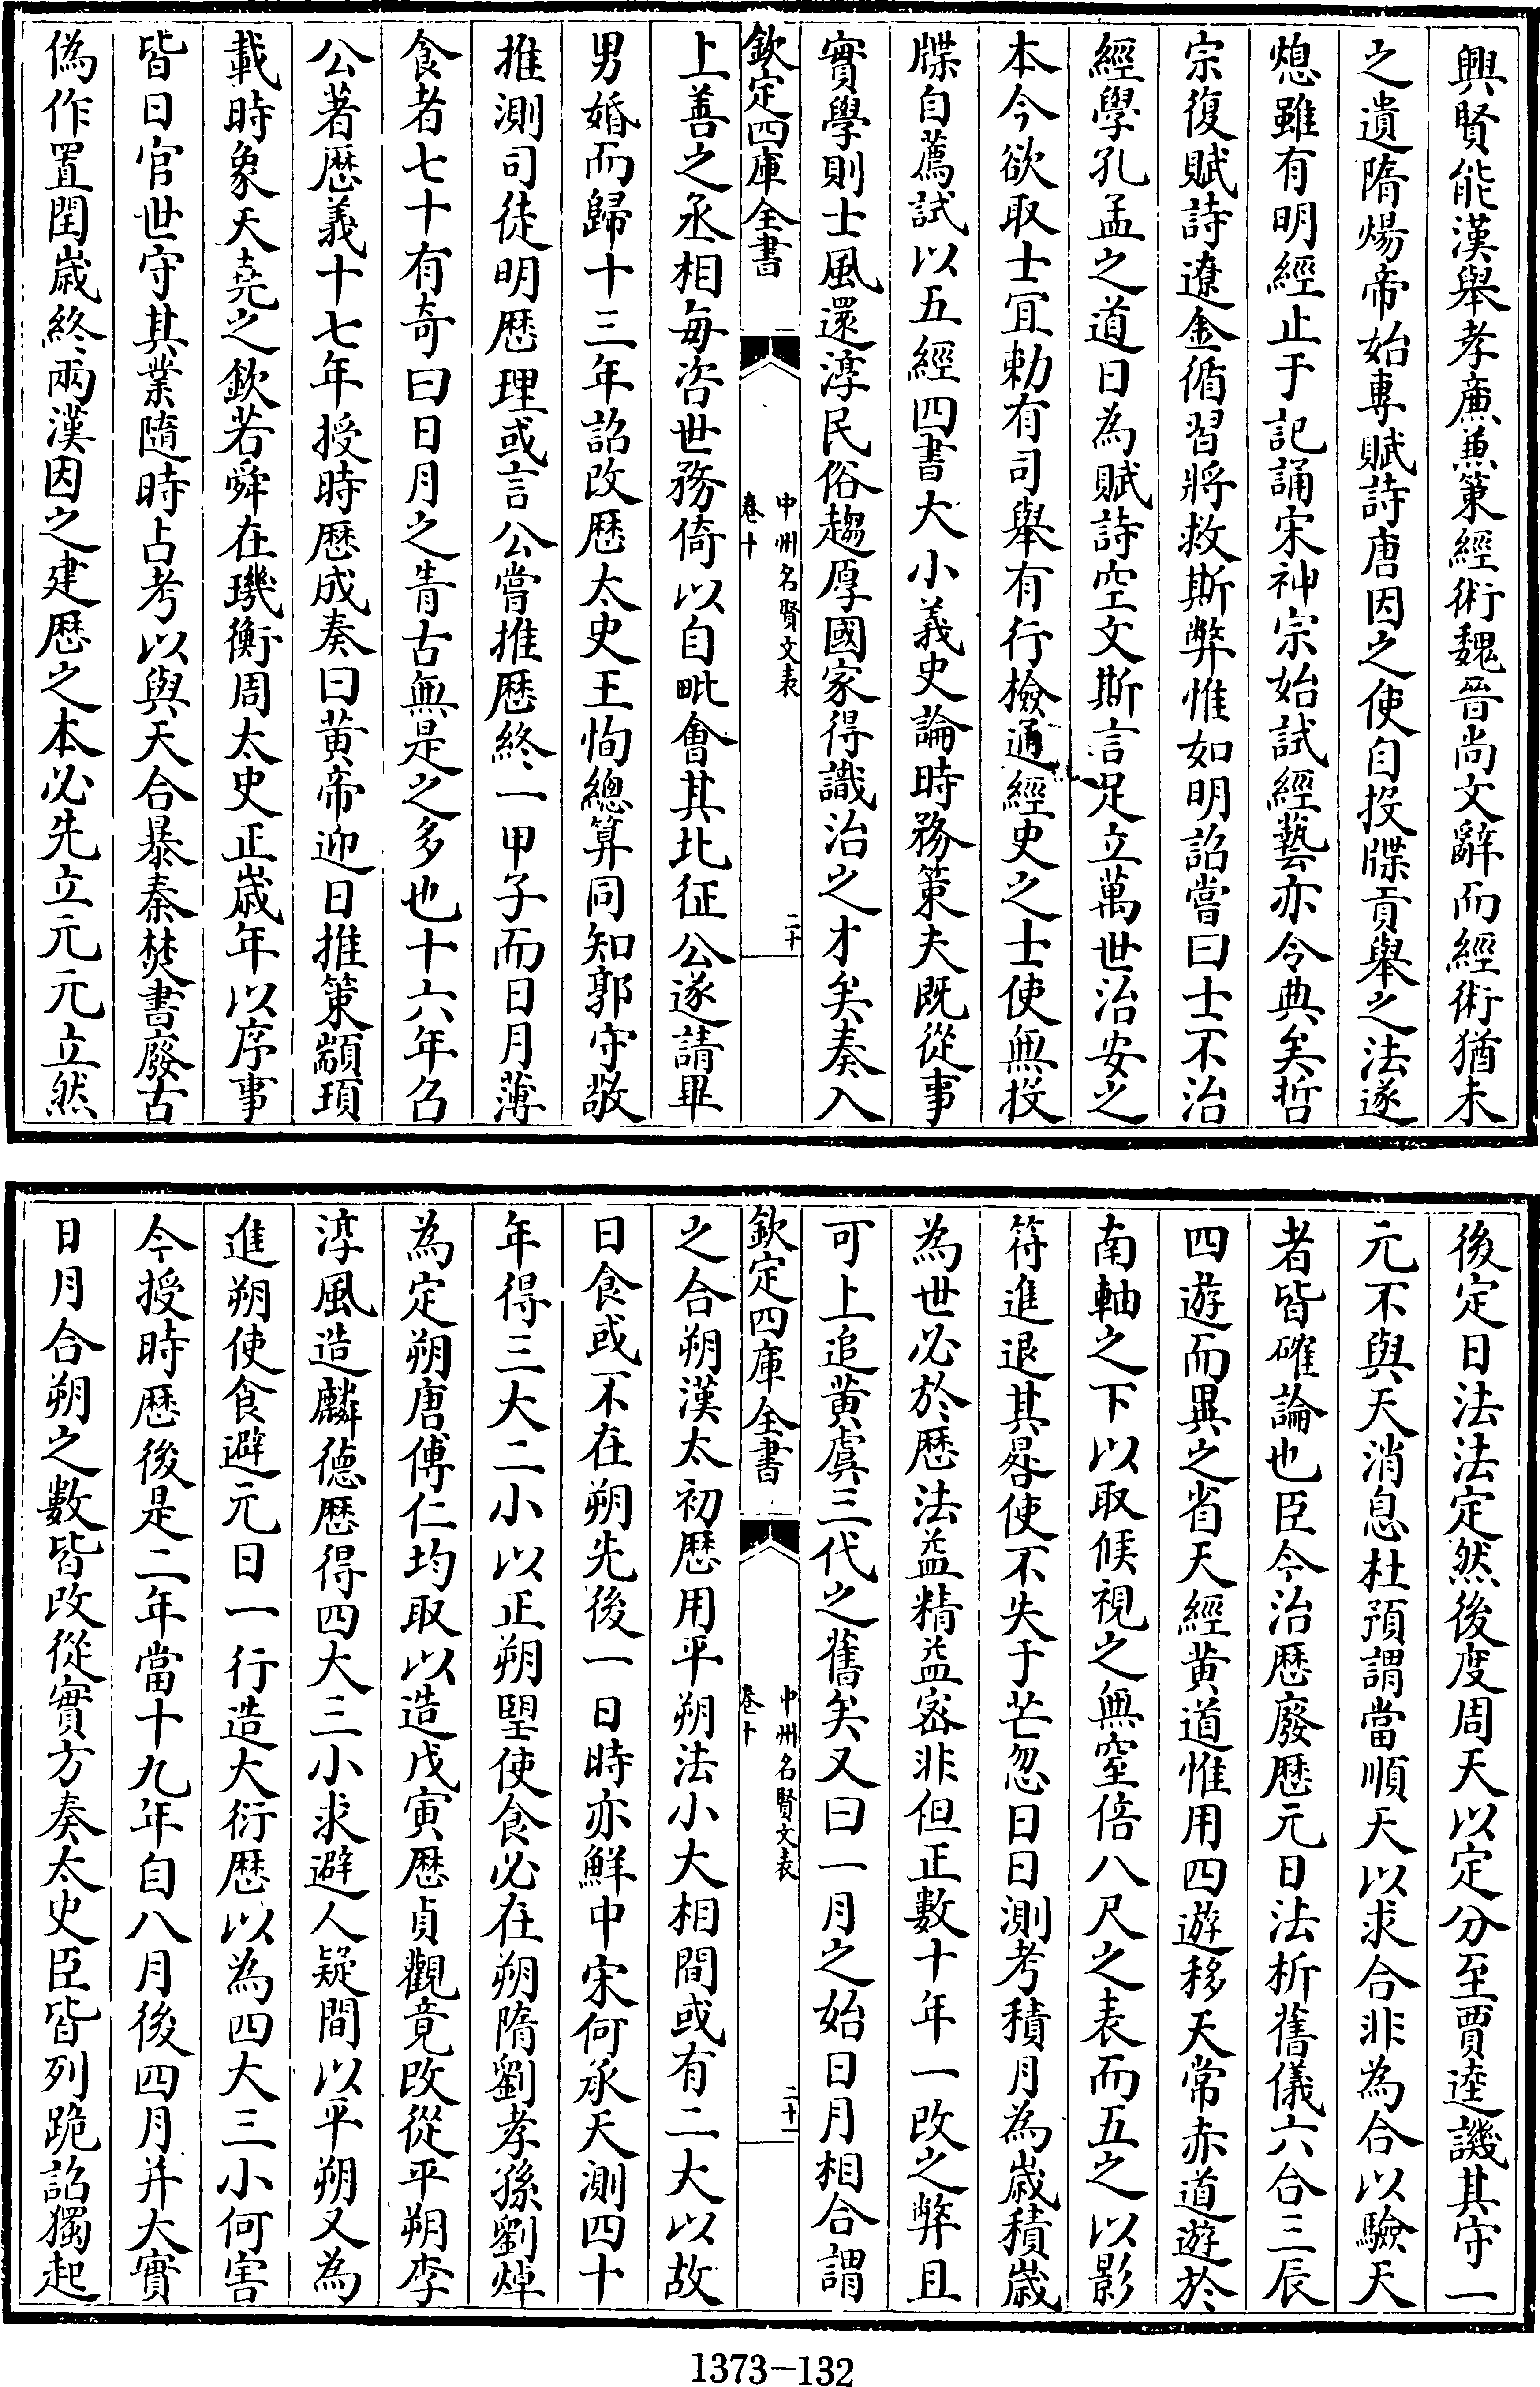 興賢能漢舉孝廉兼策經術魏晉尚文辭而經術猶未
之遺隋煬帝始專賦詩唐因之使自投牒貢舉之法遂
熄雖有明經止于記誦宋神宗始試經藝亦令典矣哲
宗復賦詩遼金循習將救斯弊惟如明詔嘗曰士不治
經學孔孟之道日為賦詩空文斯言足立萬世治安之
本今欲取士宜勅有司舉有行檢通經史之士使無投
牒自薦試以五經四書大小義史論時務策夫既從事
實學則士風還淳民俗趨厚國家得識治之才矣奏入
欽定四庫全書
中州名賢文表
卷十
二十
上善之丞相每咨世務倚以自毗會其北征公遂請畢
男婚而歸十三年詔改歷太史王恂總算同知郭守敬
推測司徒明歷理或言公嘗推歷終一甲子而日月薄
食者七十有奇曰日月之眚古無是之多也十六年召
公著歷義十七年授時歷成奏曰黃帝迎日推策顓頊
載時象天堯之欽若舜在璣衡周太史正歲年以序事
皆日官世守其業隨時占考以與天合暴秦焚書廢古
偽作置閏歲終兩漢因之建歷之本必先立元元立然
後定日法法定然後度周天以定分至賈逵譏其守一
元不與天消息杜預謂當順天以求合非為合以驗天
者皆確論也臣今治歷廢歷元日法析舊儀六合三辰
四遊而異之省天經黃道惟用四遊移天常赤道遊於
南軸之下以取候視之無窒倍八尺之表而五之以影
符進退其晷使不失于芒忽日日測考積月為歲積歲
為世必於歷法益精益密非但正數十年一改之弊且
可上追黃虞三代之舊矣又曰一月之始日月相合謂
欽定四庫全書
中州名賢文表
卷十
二十一
之合朔漢太初歷用平朔法小大相間或有二大以故
日食或不在朔先後一日時亦鮮中宋何承天測四十
年得三大二小以正朔望使食必在朔隋劉孝孫劉焯
為定朔唐傅仁均取以造戊寅歷貞觀竟改從平朔李
淳風造麟德歷得四大三小求避人疑間以平朔又為
進朔使食避元日一行造大衍歷以為四大三小何害
今授時歷後是二年當十九年自八月後四月并大實
日月合朔之數皆改從實方奏太史臣皆列跪詔獨起
1373-132